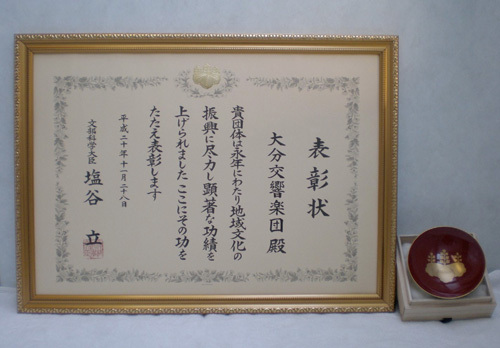 表彰状
大分交響楽団殿
貴団体は永年にわたり地域文化の
振興に尽力し顕著な功績を
上げられました ここにその功を
たたえ表彰します
平成二十年十一月二十八日
文部科学大臣 塩谷 立